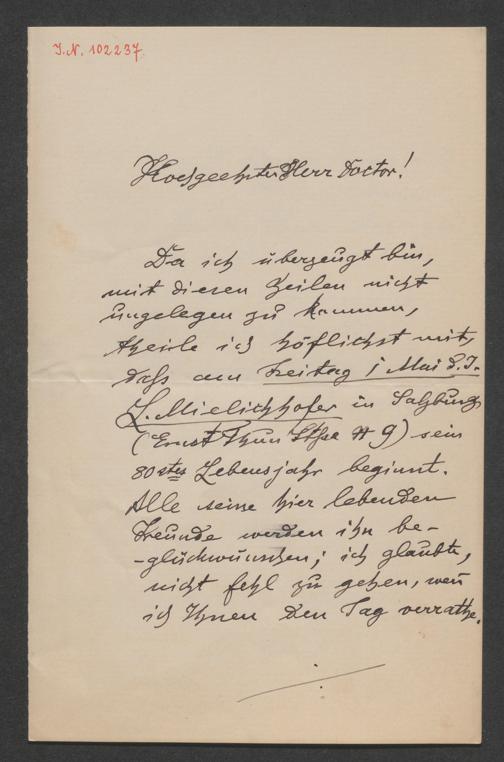 I.N. 102237
Hochgeehrter Herr Doctor!
Da ich überzeugt bin,
mit diesen Zeilen nicht
ungelegen zu kommen,
theile ich höflichst mit,
daß am Freitag 1 Mai d. J.
L. Mielichhofer in Salzburg
(Ernst Thun Stße # 9) sein
80stes Lebensjahr beginnt.
Alle seine hier lebenden
Freunde werden ihn be-
-glückwünschen; ich glaubte,
nicht fehl zu gehen, weñ
ich Ihnen den Tag verrathe.